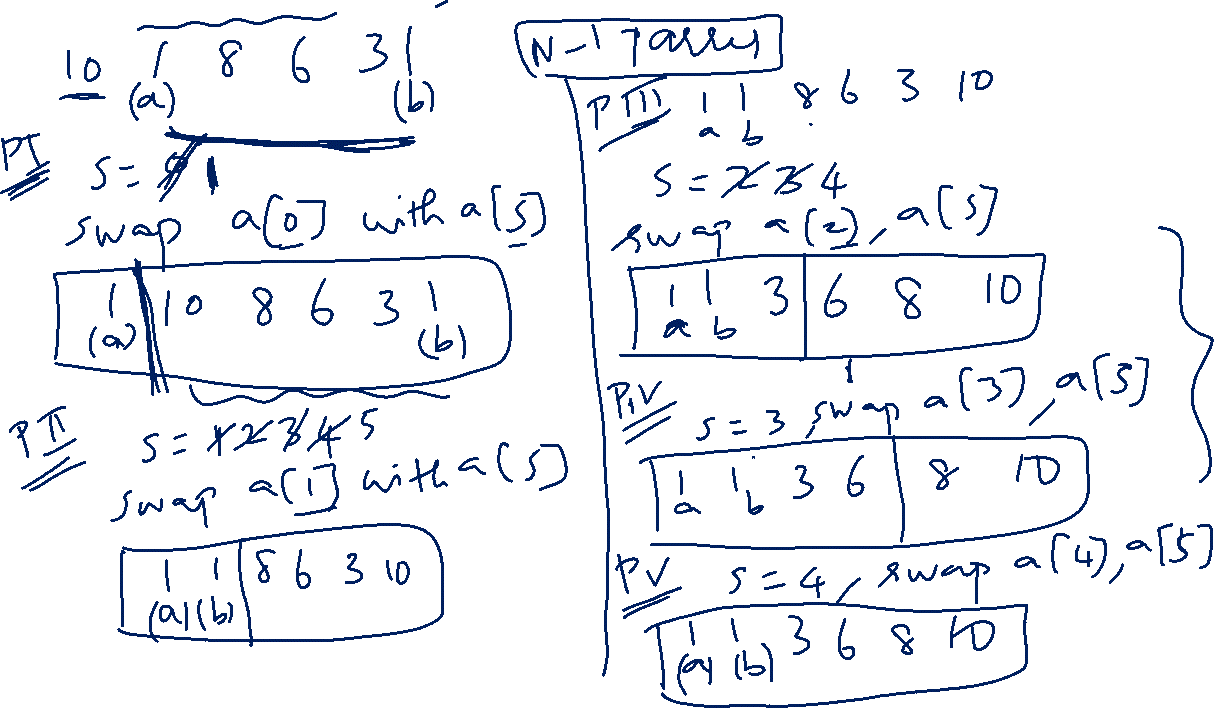 10 1 8 6 3 1
(a) (b)
PI
S = 0 1
swap a[0] with a[s]
1 10 8 6 3 1
(a) (b)
PII
S = 1 2 3 4 5
swap a[1] with a[s]
1 1 8 6 3 10
(a) (b)
N-1 Passes
PIII 1 1 8 6 3 10
a b
S = 2 3 4
swap a[2], a[s]
1 1 3 6 8 10
a b
PIV
S = 3, swap a[3], a[s]
1 1 3 6 8 10
a b
PV S = 4, swap a[4], a[s]
1 1 3 6 8 10
(a) (b)